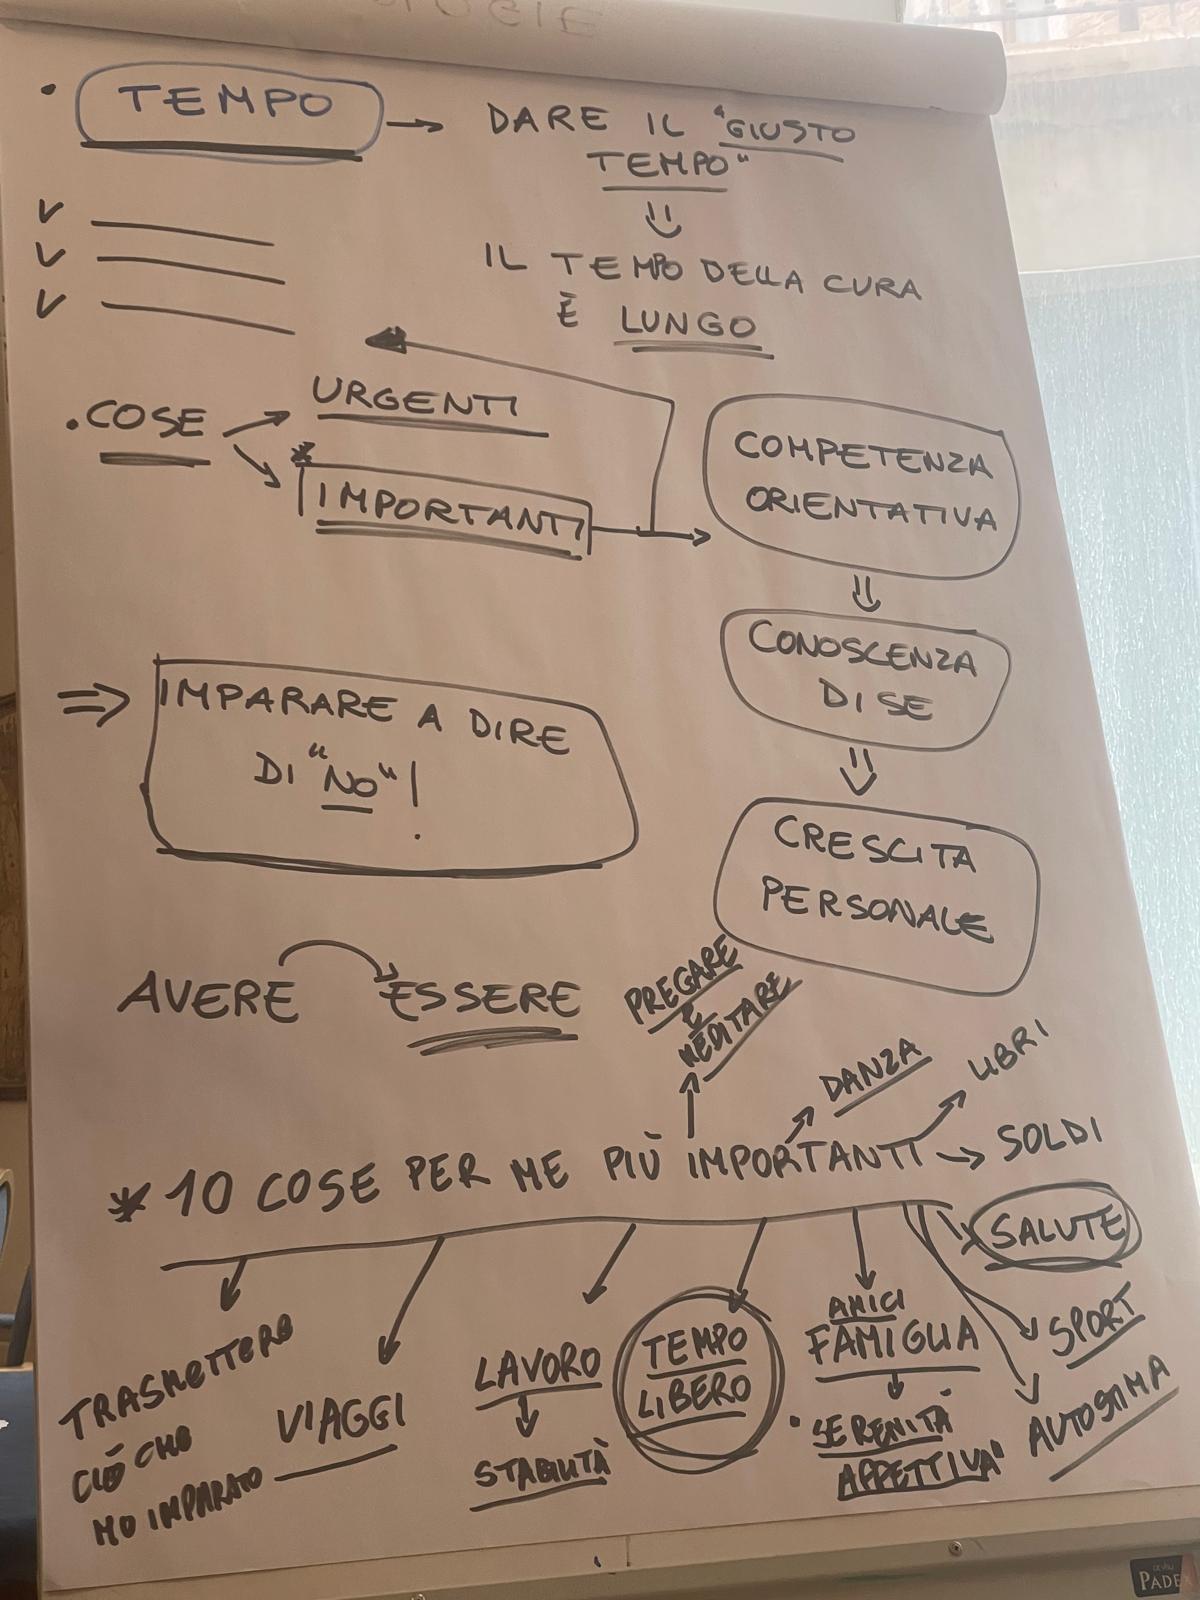 TEMPO
DARE IL "GIUSTO
TEMPO"
IL TEMPO DELLA CURA
È LUNGO
COSE
URGENTI
* IMPORTANTI
COMPETENZA
ORIENTATIVA
CONOSCENZA
DI SE
CRESCITA
PERSONALE
IMPARARE A DIRE
DI "NO"!
AVERE ESSERE
PREGARE
E
MEDITARE
DANZA
LIBRI
* 10 COSE PER ME PIÙ IMPORTANTI
SOLDI
SALUTE
SPORT
AUTOSTIMA
AMICI
FAMIGLIA
"SERENITÀ
AFFETTIVA"
TEMPO
LIBERO
LAVORO
STABILITÀ
VIAGGI
TRASMETTERE
CIÒ CHE
HO IMPARATO
PADE